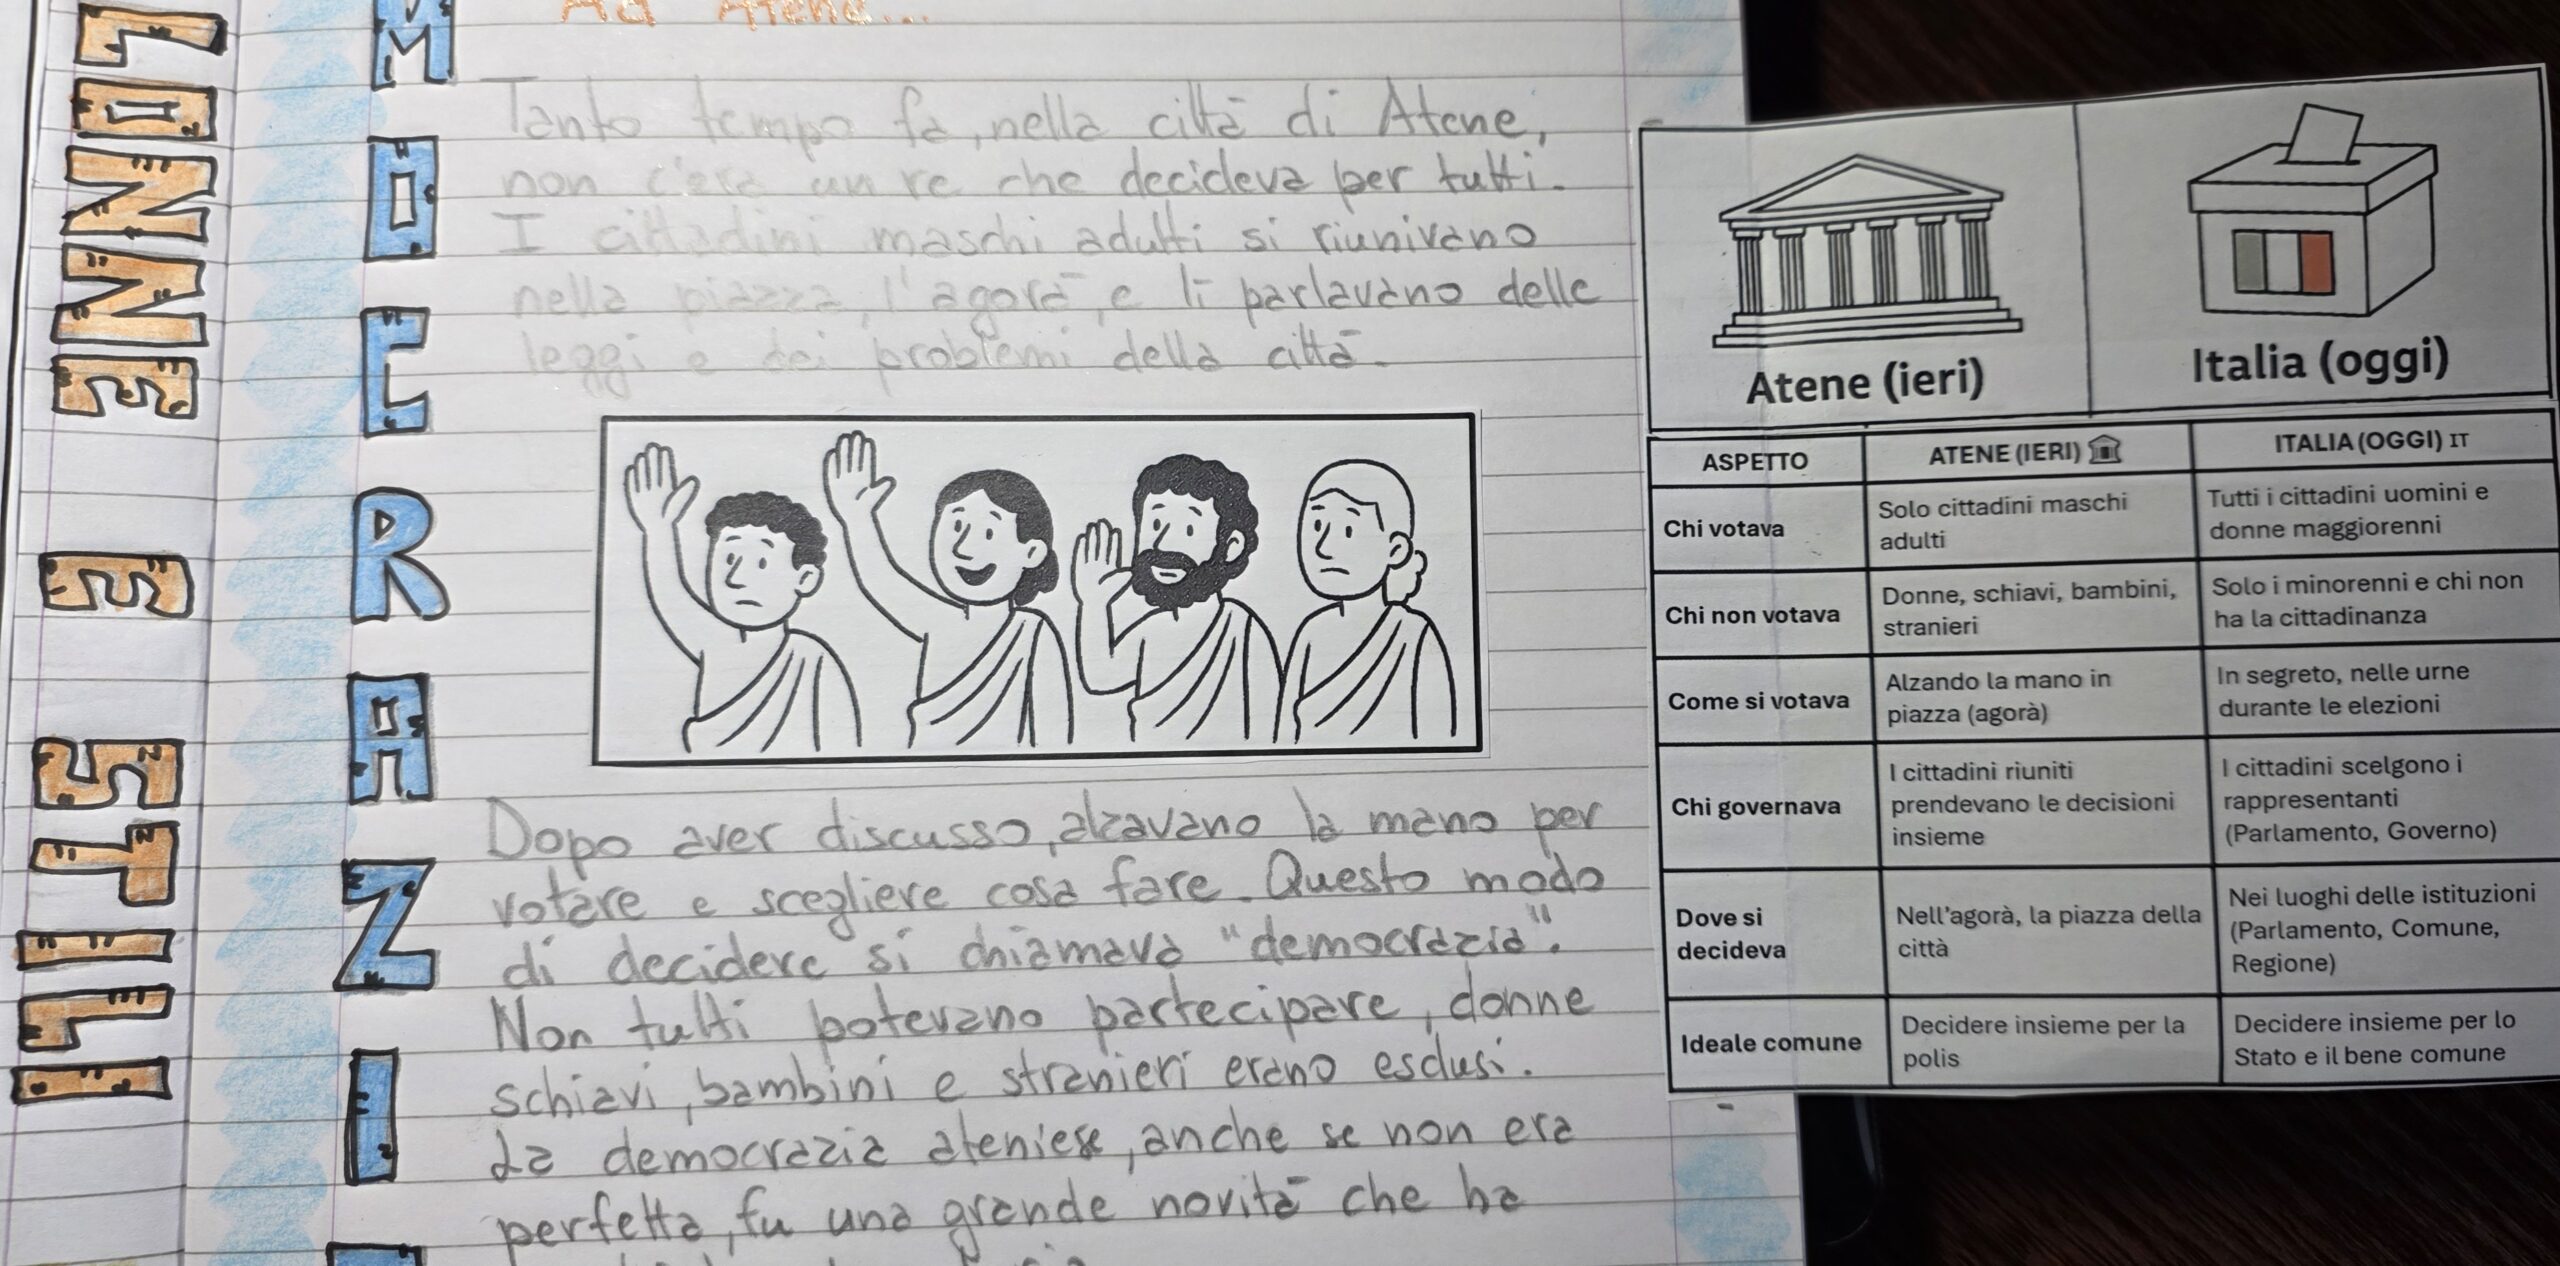 LONNE E STILI
MOCRAZI
Ad Atene...
Tanto tempo fa, nella città di Atene,
non c'era un re che decideva per tutti.
I cittadini maschi adulti si riunivano
nella piazza, l'agorà, e lì parlavano delle
leggi e dei problemi della città.
Dopo aver discusso, alzavano la mano per
votare e scegliere cosa fare. Questo modo
di decidere si chiamava "democrazia".
Non tutti potevano partecipare, donne
schiavi, bambini e stranieri erano esclusi.
La democrazia ateniese, anche se non era
perfetta, fu una grande novità che ha
Atene (ieri)
Italia (oggi)
ASPETTO
ATENE (IERI)
ITALIA (OGGI) IT
Chi votava
Solo cittadini maschi
adulti
Tutti i cittadini uomini e
donne maggiorenni
Chi non votava
Donne, schiavi, bambini,
stranieri
Solo i minorenni e chi non
ha la cittadinanza
Come si votava
Alzando la mano in
piazza (agorà)
In segreto, nelle urne
durante le elezioni
Chi governava
I cittadini riuniti
prendevano le decisioni
insieme
I cittadini scelgono i
rappresentanti
(Parlamento, Governo)
Dove si
decideva
Nell'agorà, la piazza della
città
Nei luoghi delle istituzioni
(Parlamento, Comune,
Regione)
Ideale comune
Decidere insieme per la
polis
Decidere insieme per lo
Stato e il bene comune